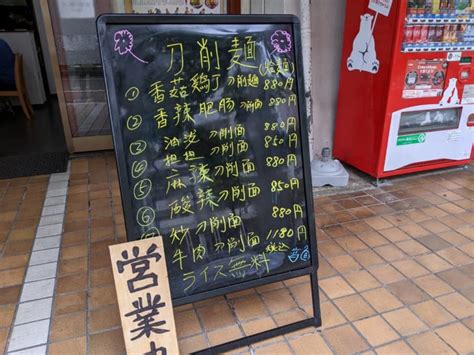 刀削麺
① 香菇鶏丁刀削麺 880円
② 香辣肥肠刀削面 880円
③ 油泼刀削面 880円
④ 担担刀削面 850円
⑤ 麻辣刀削面 880円
⑥ 酸辣刀削面 850円
炒刀削面 880円
牛肉刀削面 1180円
税込
ライス無料
営業